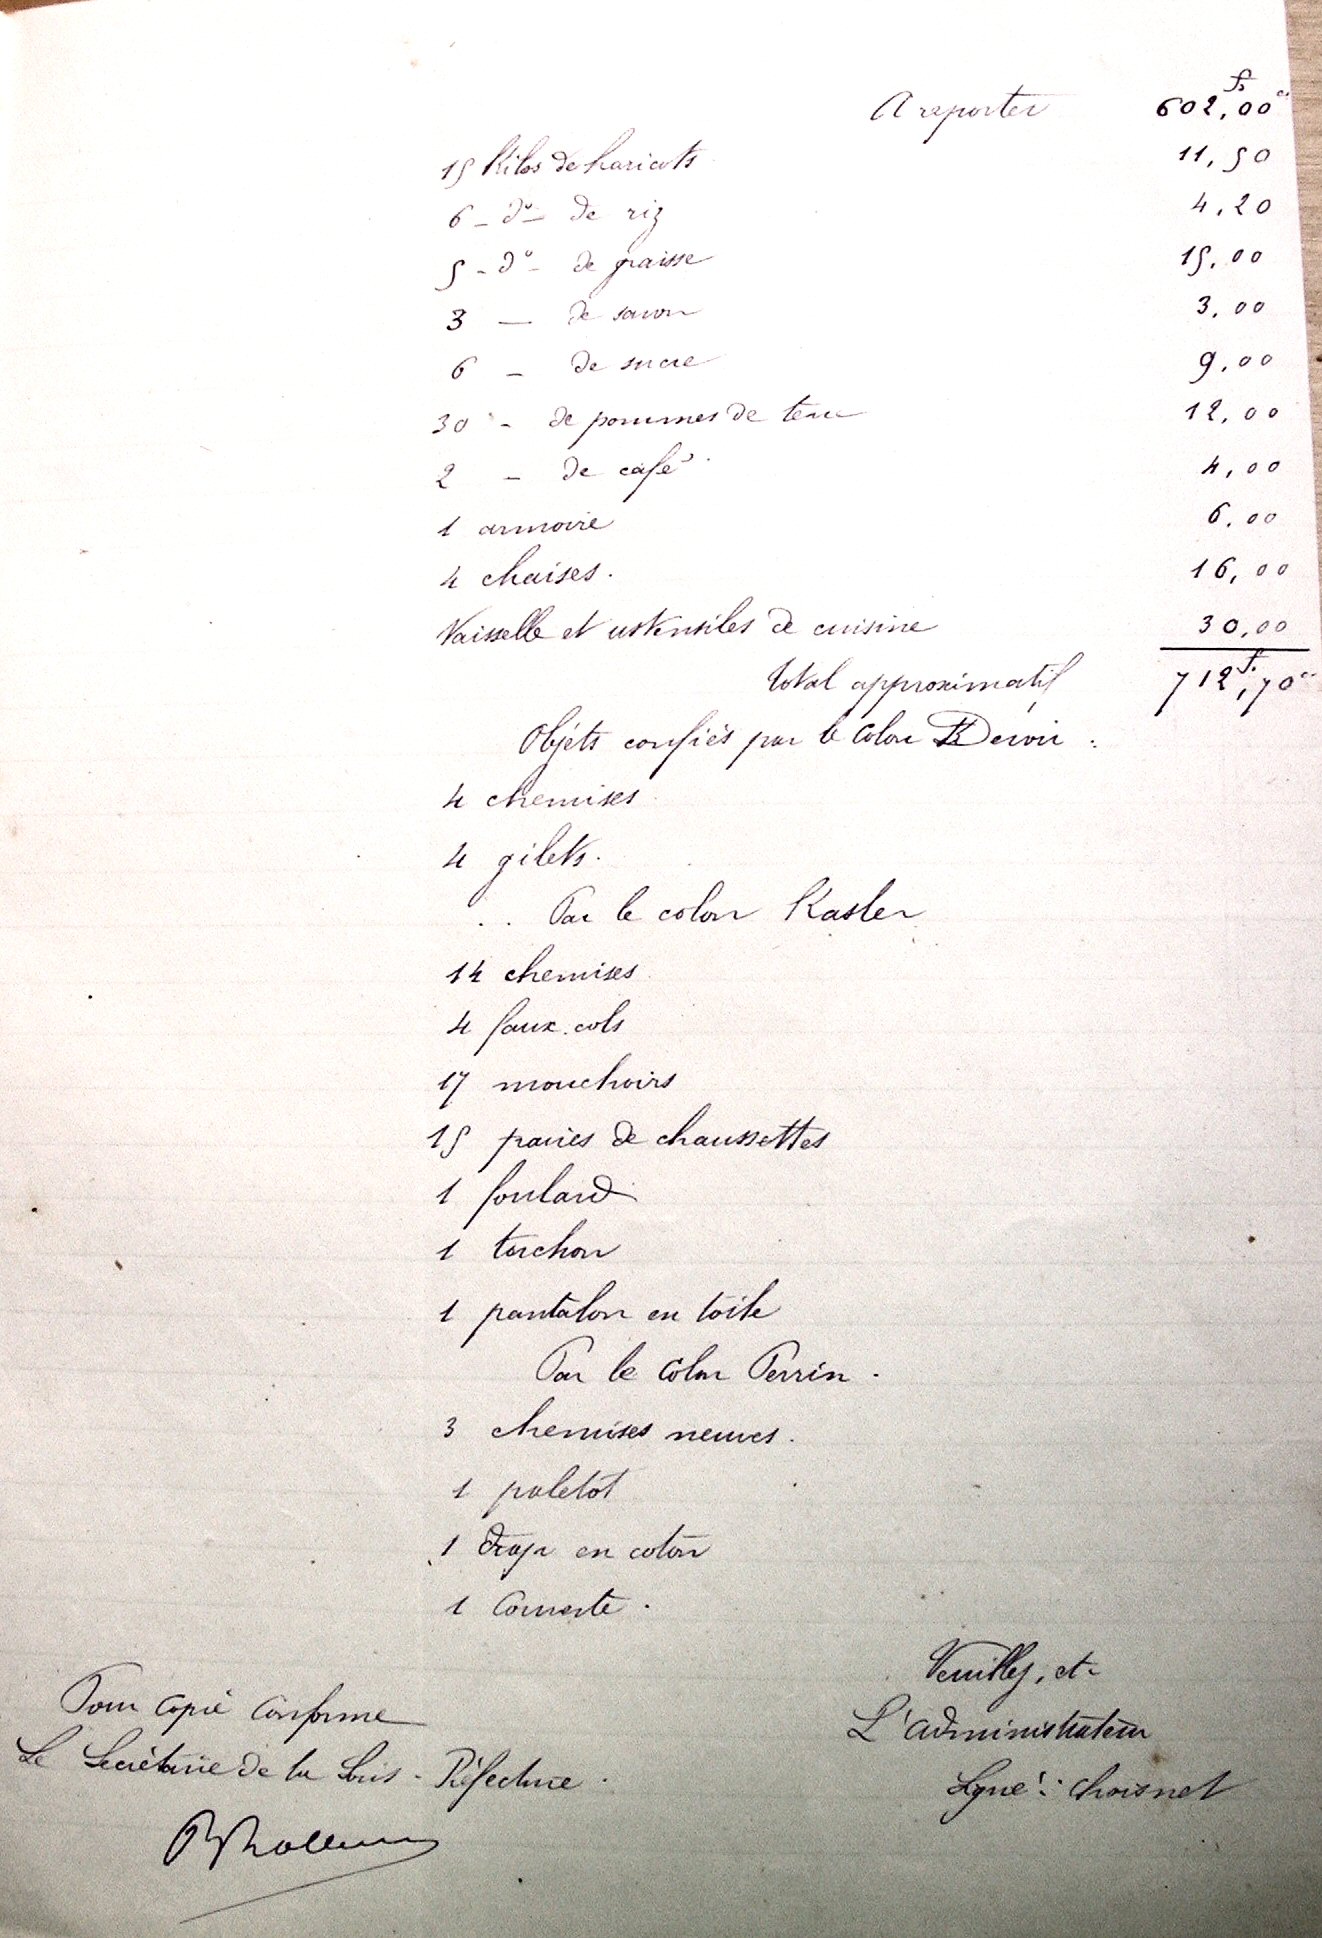 A reporter 602,00
15 Kilos de haricots 11,50
6 - dº - de riz 4,20
5 - dº - de graisse 15,00
3 — de savon 3,00
6 - de sucre 9,00
30 - de pommes de terre 12,00
2 - de café 4,00
1 armoire 6,00
4 chaises. 16,00
Vaisselle et ustensiles de cuisine 30,00
Total approximatif 712f,70
Objets confiés par le colon Devoir :
4 chemises
4 gilets.
Par le colon Kasler
14 chemises
4 faux.cols
17 mouchoirs
15 paires de chaussettes
1 foulard
1 torchon
1 pantalon en toile
Par le colon Perrin.
3 chemises neuves.
1 paletot
1 drap en coton
1 Couverte.
Veuillez, etc
L'administrateur
Signé : Choisnet
Pour copie conforme
Le Secrétaire de la Sous-Préfecture.